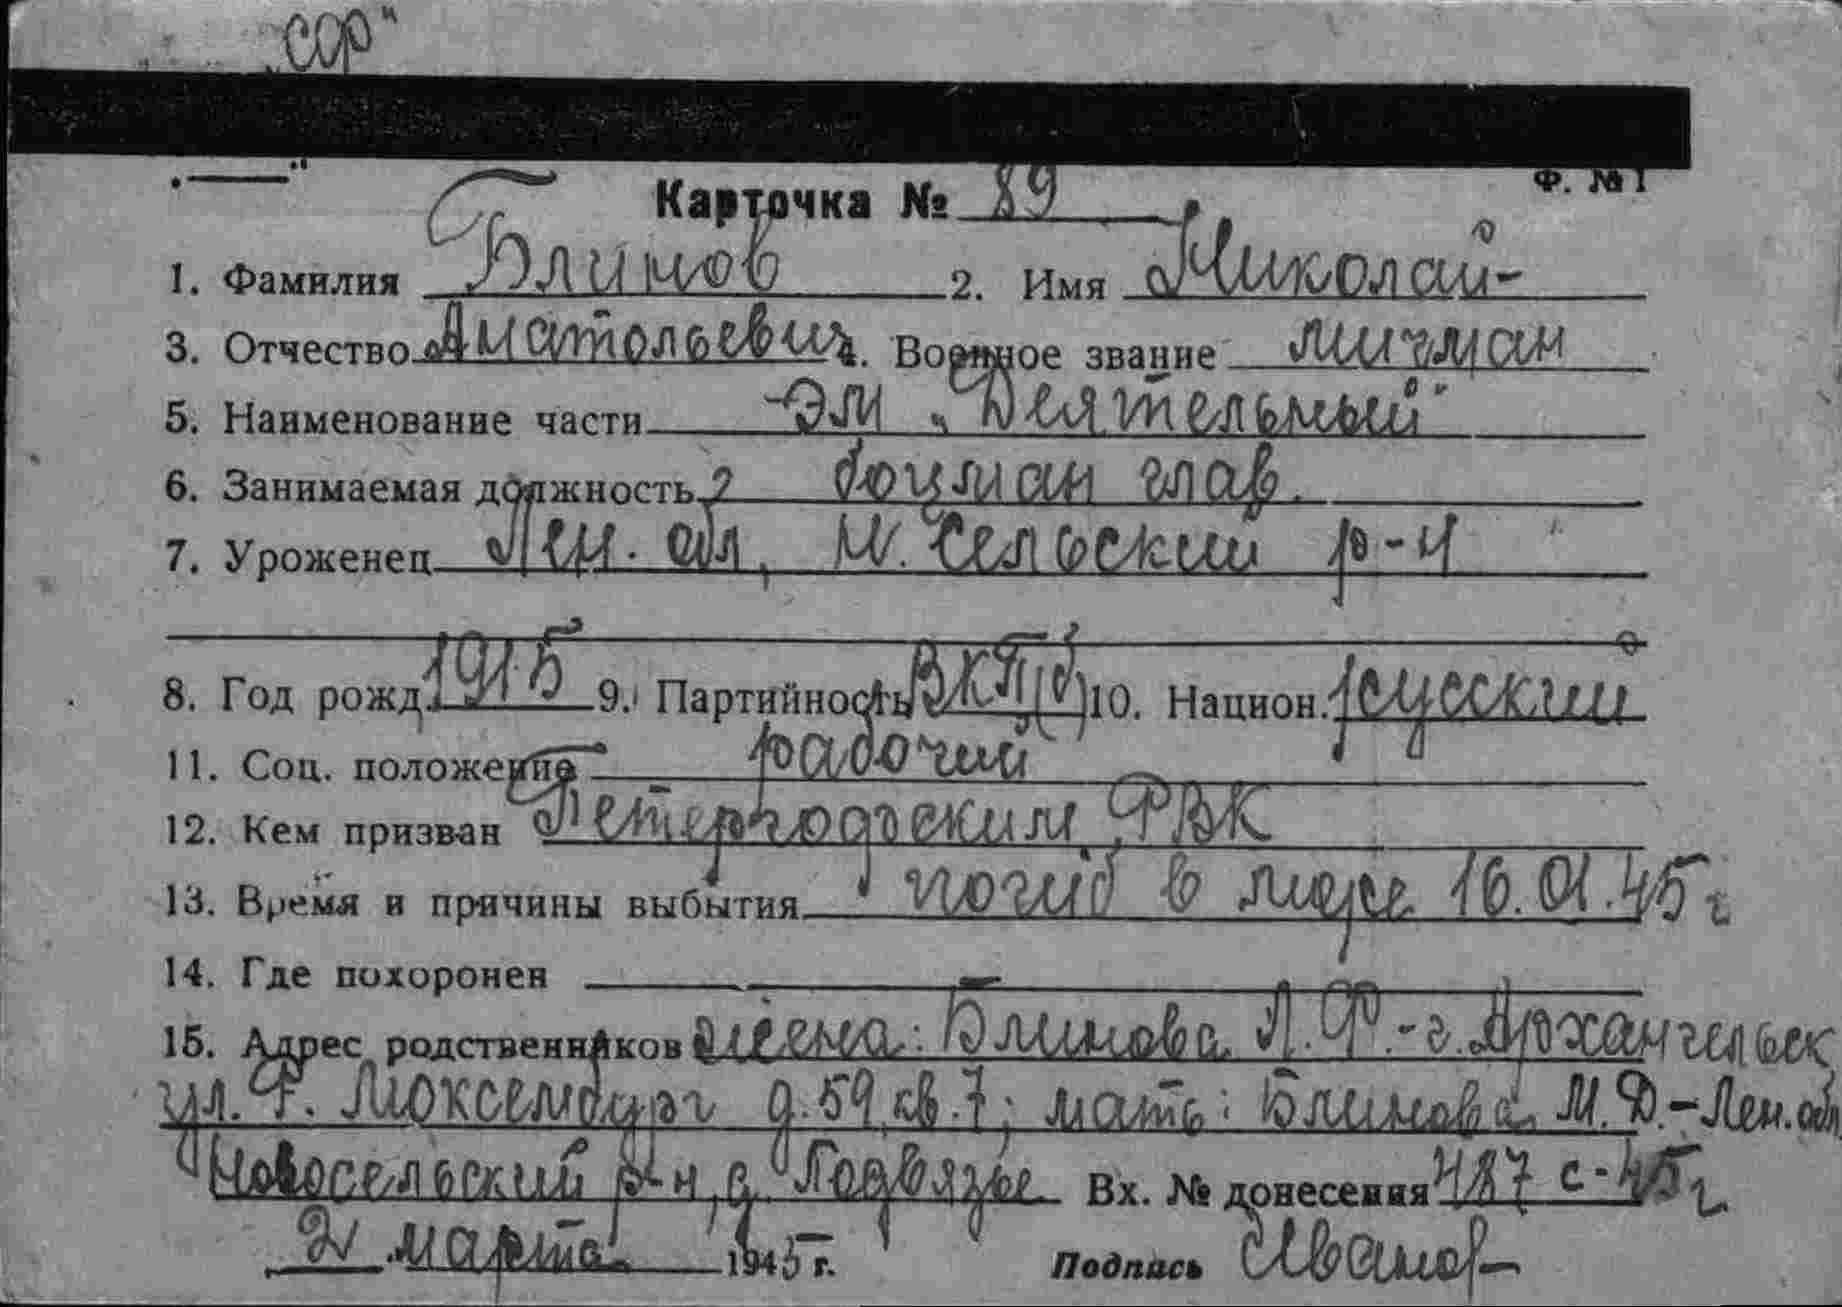 ССР"
Ф. №1
Карточка № 89
1. Фамилия Блинов 2. Имя Николай
3. Отчество Анатольевич 4. Военное звание мичман
5. Наименование части ЭМ "Деятельный"
6. Занимаемая должность боцман глав.
7. Уроженец Лен. обл, Н. Сельский р-н
8. Год рожд. 1915 9. Партийность ВКП(б) 10. Национ. русский
11. Соц. положение рабочий
12. Кем призван Петергофским РВК
13. Время и причины выбытия погиб в море 16.01.45 г
14. Где похоронен
15. Адрес родственников жена: Блинова Л. Ф. - г. Архангельск
ул. Р. Люксембург д. 59 кв. 7; мать: Блинова М. Д. - Лен. обл
Новосельский р-н, д. Подвязье Вх. № донесения 487 с - 45 г
2 марта 1945 г. Подпись Иванов